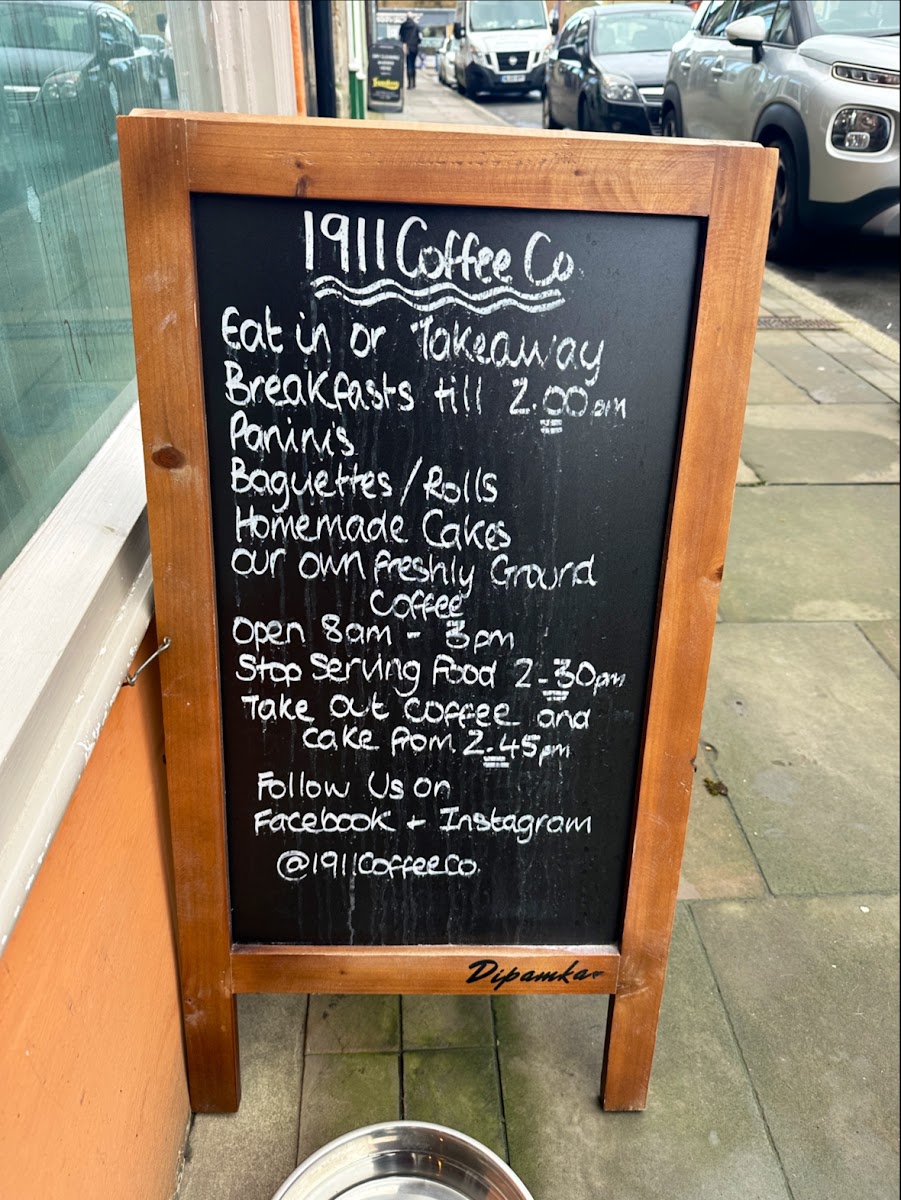 1911 Coffee Co
Eat in or Takeaway
Breakfasts till 2.00pm
Panini's
Baguettes / Rolls
Homemade Cakes
our own freshly Ground
Coffee
Open 8am - 3pm
Stop Serving Food 2-30pm
Take Out Coffee and
cake from 2.45pm
Follow Us on
Facebook + Instagram
@1911CoffeeCo.
Dipamkar